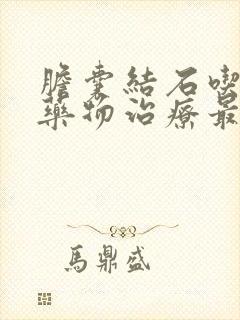 膽囊結石喫
藥物治療最
馬鼎盛